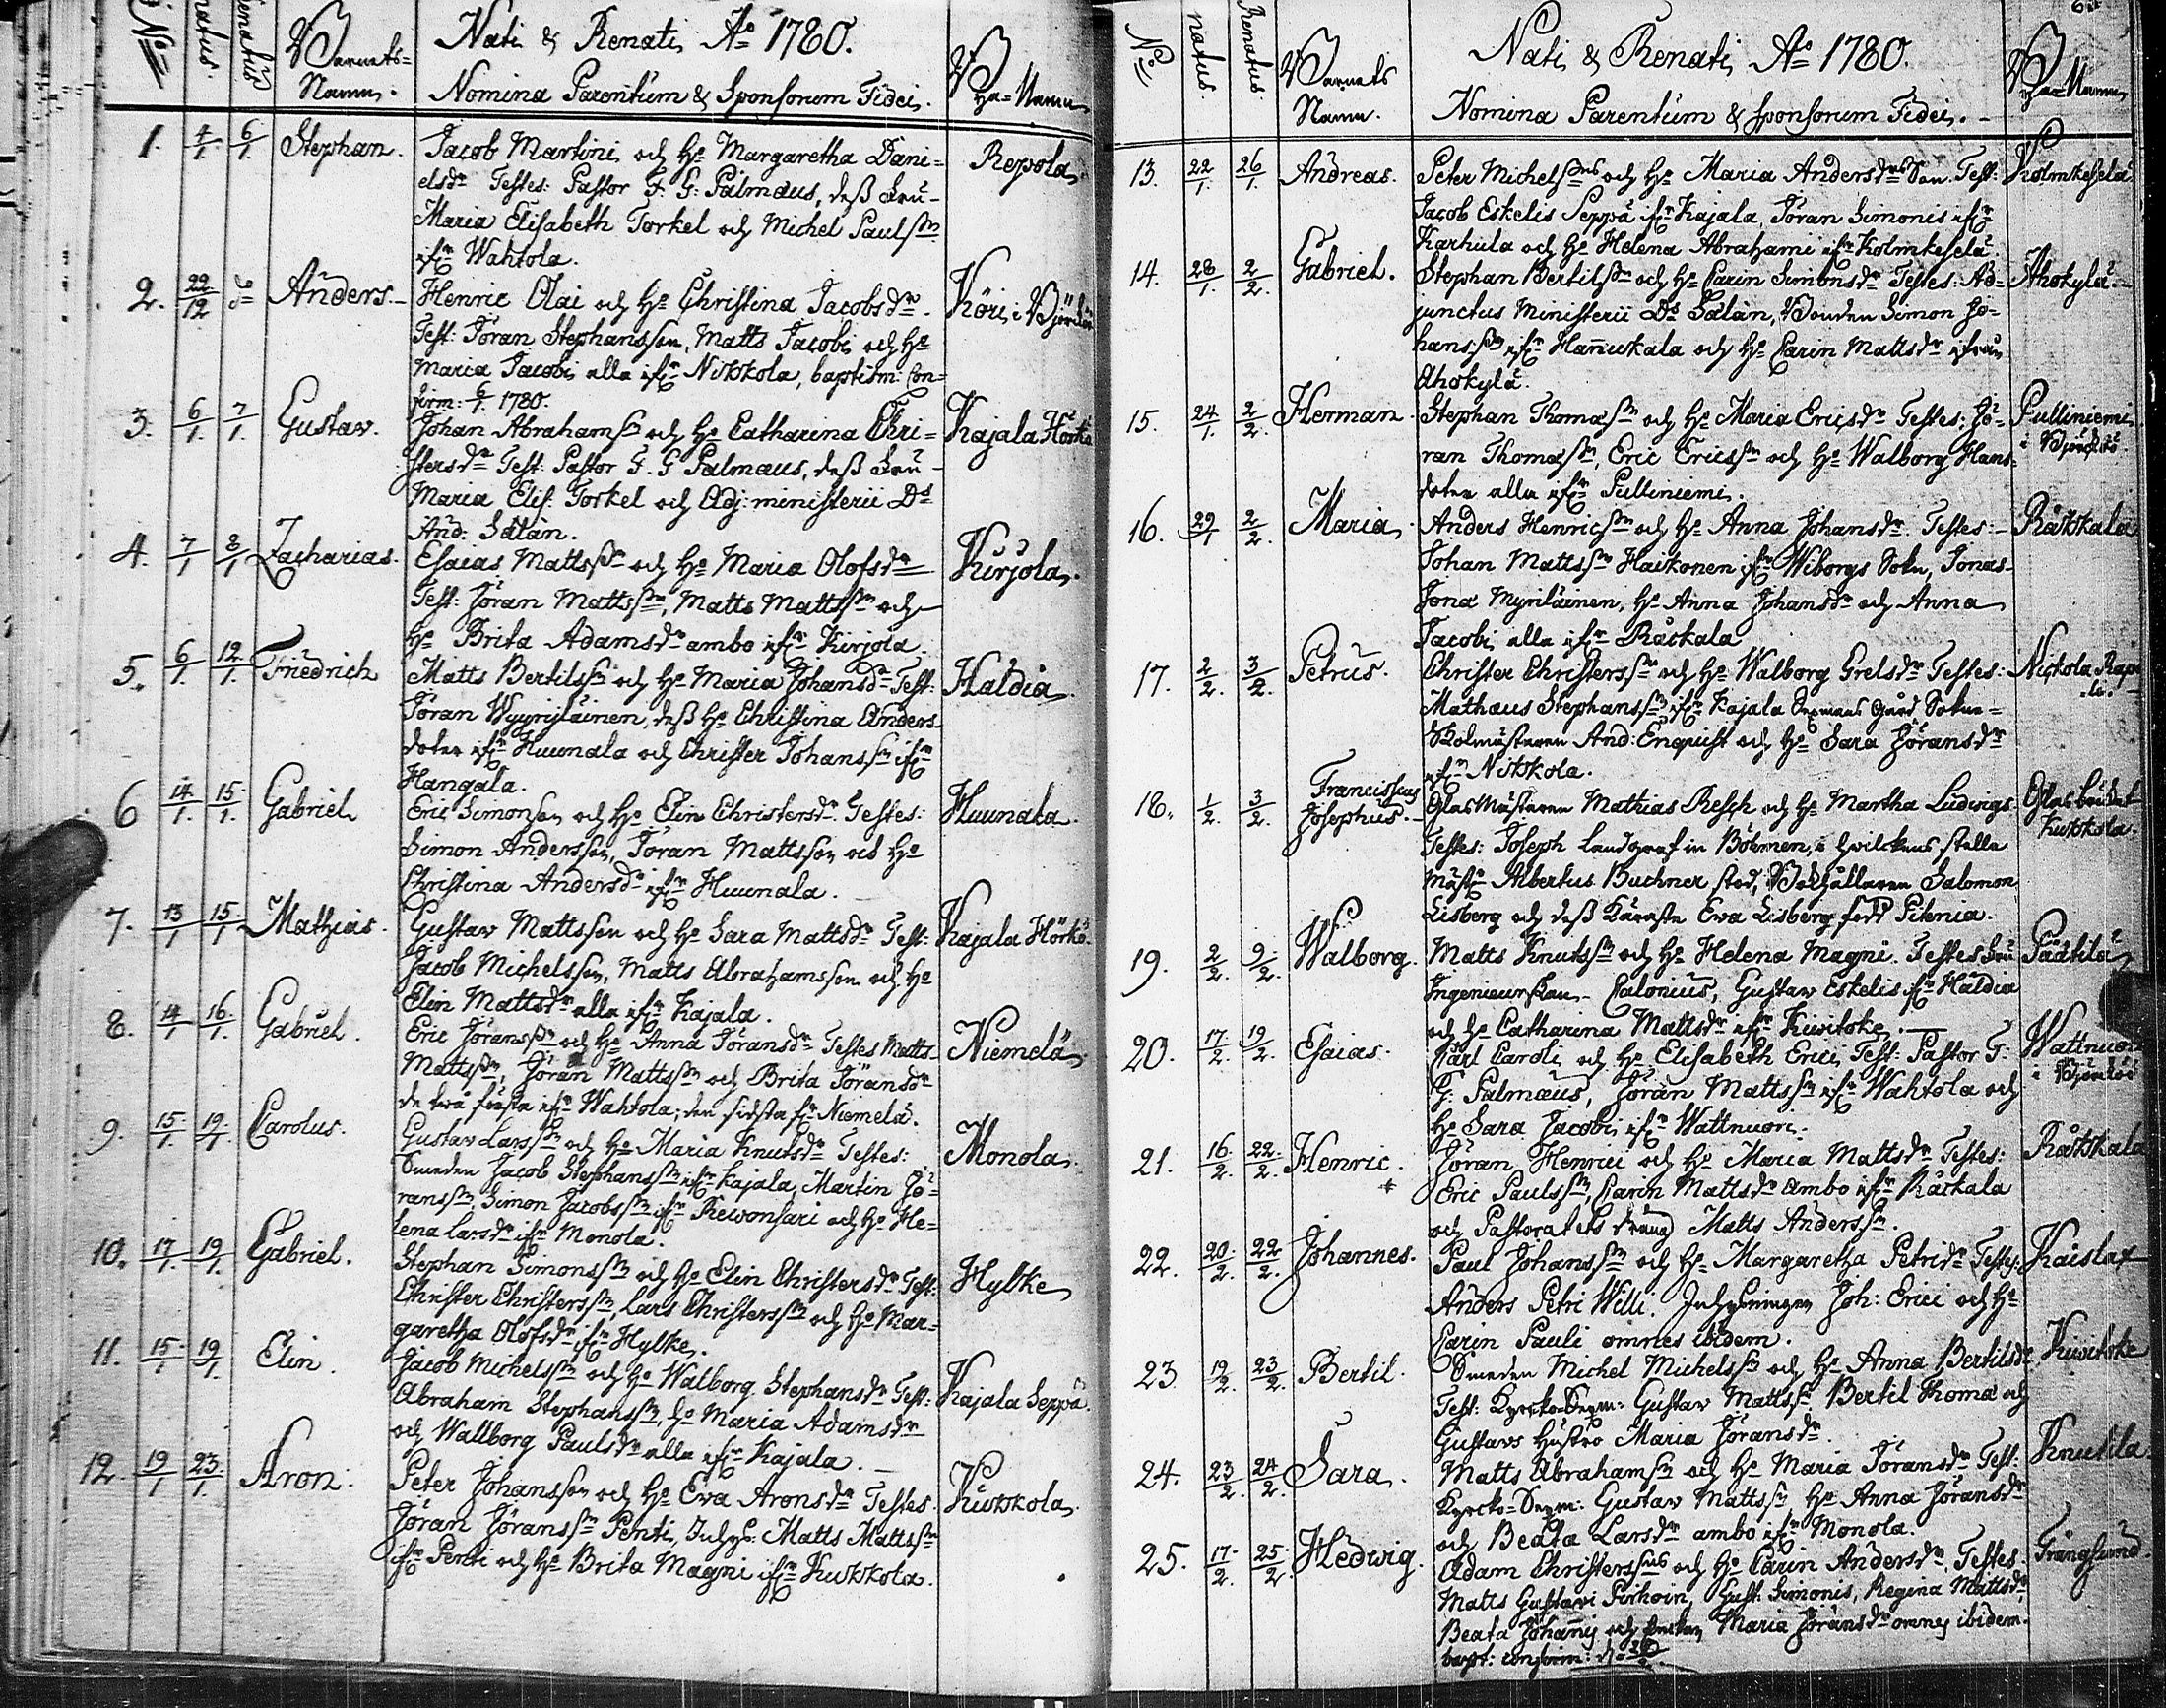 No natus. Renatus Barnets Namn. Nati & Renati Ao 1780. Nomina Parentum & Sponsorum Fidei. By=Namn
1. 4/1 6/1 Stephan. Jacob Martini och Ho Margaretha Dani= Repola
elsdr Testes: Pastor F. G: Palmæus, dess Fru
Maria Elisabeth Torkel och Michel Paulssn
ifrn Wahtola.
2. 22/12 Anders. Henric Olai och Ho Christina Jacobsdr. Köri i Björkö
Test: Jöran Stephansson, Matts Jacobi och Ho
Maria Jacobi alla ifrn Nikkola, baptism: Con=
firm: 6/1. 1780.
3. 6/1. 7/1. Gustav. Johan Abrahamssn och Ho Catharina Chri= Kajala Hörkö
stersdr Test: Pastor F. G Palmæus, dess Fru
Maria Elis. Torkel och Adj: ministerii Ds
And: Salàn.
4. 7/1 8/1 Zacharias. Esaias Mattssn och Ho Maria Olofsdr Kurjola.
Test: Jöran Mattssn, Matts Mattssn och
Ho Brita Adamsdr ambo ifrn Kirjola.
5. 6/1. 12/1. Friedrich Matts Bertilssn och Ho Maria Johansdr Test: Haldia
Jöran Wyyryläinen, dess Ho Christina Anders
doter ifrn Huunala och Christer Johanssn ifrn
Hangala.
6 14/1. 15/1. Gabriel Eric Simonson och Ho Elin Christersdr. Testes: Huunala.
Simon Andersson, Jöran Mattsson och Ho
Christina Andersdr ifrn Huunala.
7. 13/1 15/1 Mathias. Gustav Mattsson och Ho Sara Mattsdr Test: Kajala Hörkö.
Jacob Michelsson, Matts Abrahamsson och Ho
Elin Mattsdr alla ifrn Kajala.
8. 14/1 16/1. Gabriel. Eric Jöranssn och Ho Anna Jöransdr Testes Matts Niemelä
Mattssn, Jöran Mattssn och Brita Jöransdr
de två första ifrn Wahtola; den sidsta fr Niemelä.
9. 15/1. 19/1. Carolus. Gustav Larssn och Ho Maria Knutsdr Testes: Monola.
Smeden Jacob Stephanssn ifrn Kajala, Martin Jö=
ranssn, Simon Jacobssn ifrn Rewonsari och Ho He=
lena Larsdr ifrn Monola.
10. 17/1. 19/1. Gabriel. Stephan Simonssn och Ho Elin Christersdr Test: Hylke
Christer Christerssn, Lars Christerssn och Ho Mar=
garetha Olofsdr ifrn Hylke.
11. 15/1. 19/1. Elin. Jacob Michelssn och Ho Walborg Stephansdr Test: Kajala Seppä.
Abraham Stephanssn, Ho Maria Adamsdr
och Wallborg Paulsdr alla ifrn Kajala.
12. 19/1 23/1. Aron. Peter Johansson och Ho Eva Aronsdr Testes Kukkola
Jöran Jöranssn Penti, Inhys: Matts Mattssn
ifrn Penti och Ho Brita Magni ifrn Kukkola.
No natus. Renatus. Barnets Namn. Nati & Renati Ao 1780. Nomina Parentum & Sponsorum Fidei. By=Namn
13. 22/1. 26/1. Andreas. Peter Michelssns och Ho Maria Andersdrs Son. Test: Kolmkeselä
Jacob Eskelis Seppä ifrn Kajala, Jöran Simonis ifrn
Karhula och Ho Helena Abrahami ifrn Kolmkeselä
14. 28/1. 2/2. Gabriel. Stephan Bertilssn och Ho Carin Simonsdr Testes: Ad= Ahokylä.
junctus Ministerii Ds Salàn, Bonden Simon Jo=
hanssn ifrn Hannukala och Ho Carin Mattsdr ifrån
Ahokylä.
15. 24/1. 2/2. Herman. Stephan Thomassn och Ho Maria Ericsdr Testes: Jö= Pulliniemi
ran Thomassn, Eric Ericssn och Ho Walborg Hans= i Björckö
doter alla ifrn Pulliniemi.
16. 29/1 2/2. Maria. Anders Henricssn och Ho Anna Johansdr Testes: Räkkala
Johan Mattssn Haikonen ifrn Wiborgs Sokn, Jonas
Jonæ Myriläinen, Ho Anna Johansdr och Anna
Jacobi alla ifrn Räckala
17. 2/2. 3/2. Petrus. Christer Christerssn och Ho Walborg Grelsdr Testes: Nickola
Mathæus Stephanssn ifrn Kajala Sexmans Gård Sokne=
Skolmästaren And: Enquist och Ho Sara Jöransdr
ifrn Nikkola.
18. 1/2. 3/2. Franciscus Josephus. Glas Mästaren Mathias Resch och Ho Martha Ludwigs Glasbruket
Testes: Joseph Landgraf in Böhmen, i hvilckens ställe Kukkola.
Mästr Albertus Buchner stod, Bokhållaren Salomon
Lisberg och dess Käresta Eva Lisberg född Pitenia.
19. 2/2. 9/2. Walborg. Matts Knutssn och Ho Helena Magni. Testes Fru Päätilä
Ingenieurskan Calonius, Gustav Eskelis ifrn Haldia
och Ho Catharina Mattsdr ifrn Kiwitoke.
20. 17/2. 19/2. Esaias. Karl Caroli och Ho Elisabeth Erici Test: Pastor F: Wattnuori
G: Palmæus, Jöran Mattssn ifrn Wahtola och i Björkö
Ho Sara Jacobi ifrn Wattnuori.
21. 16/2. 22/2. Henric. Jöran Henrici och Ho Maria Mattsdr Testes: Räkkala
Eric Paulssn, Carin Mattsdr ambo ifrn Räckala
och Pastoratets dräng Matts Anderssn.
22. 20/2. 22/2. Johannes. Paul Johanssn och Ho Margaretha Petridr Testes: Kaislax
Anders Petri Willi. Inhysningen Joh: Erici och Ho
Carin Pauli omnes ibidem.
23 19/2. 23/2. Bertil. Smeden Michel Michelssn och Ho Anna Bertilsdr Kiwitoke
Test: Kyrcko-Sexm: Gustav Mattssn, Bertil Thomæ och
Gustavs Hustro Maria Jöransdr.
24. 23/2. 24/2. Sara. Matts Abrahamssn och Ho Maria Jöransdr Test: Knutila.
Kyrcko=Sexm: Gustav Mattssn, Ho Anna Jöransdr
och Beata Larsdr ambo ifrn Monola.
25. 17/2. 25/2. Hedwig. Adam Christerssns och Ho Carin Andersdr. Testes Trångsund.
Matts Gustavi Pirhoin, Gust: Simonis, Regina Mattsdr,
Beata Johannis och Maria Jöransdr omnes ibidem.
bapt: confirm: